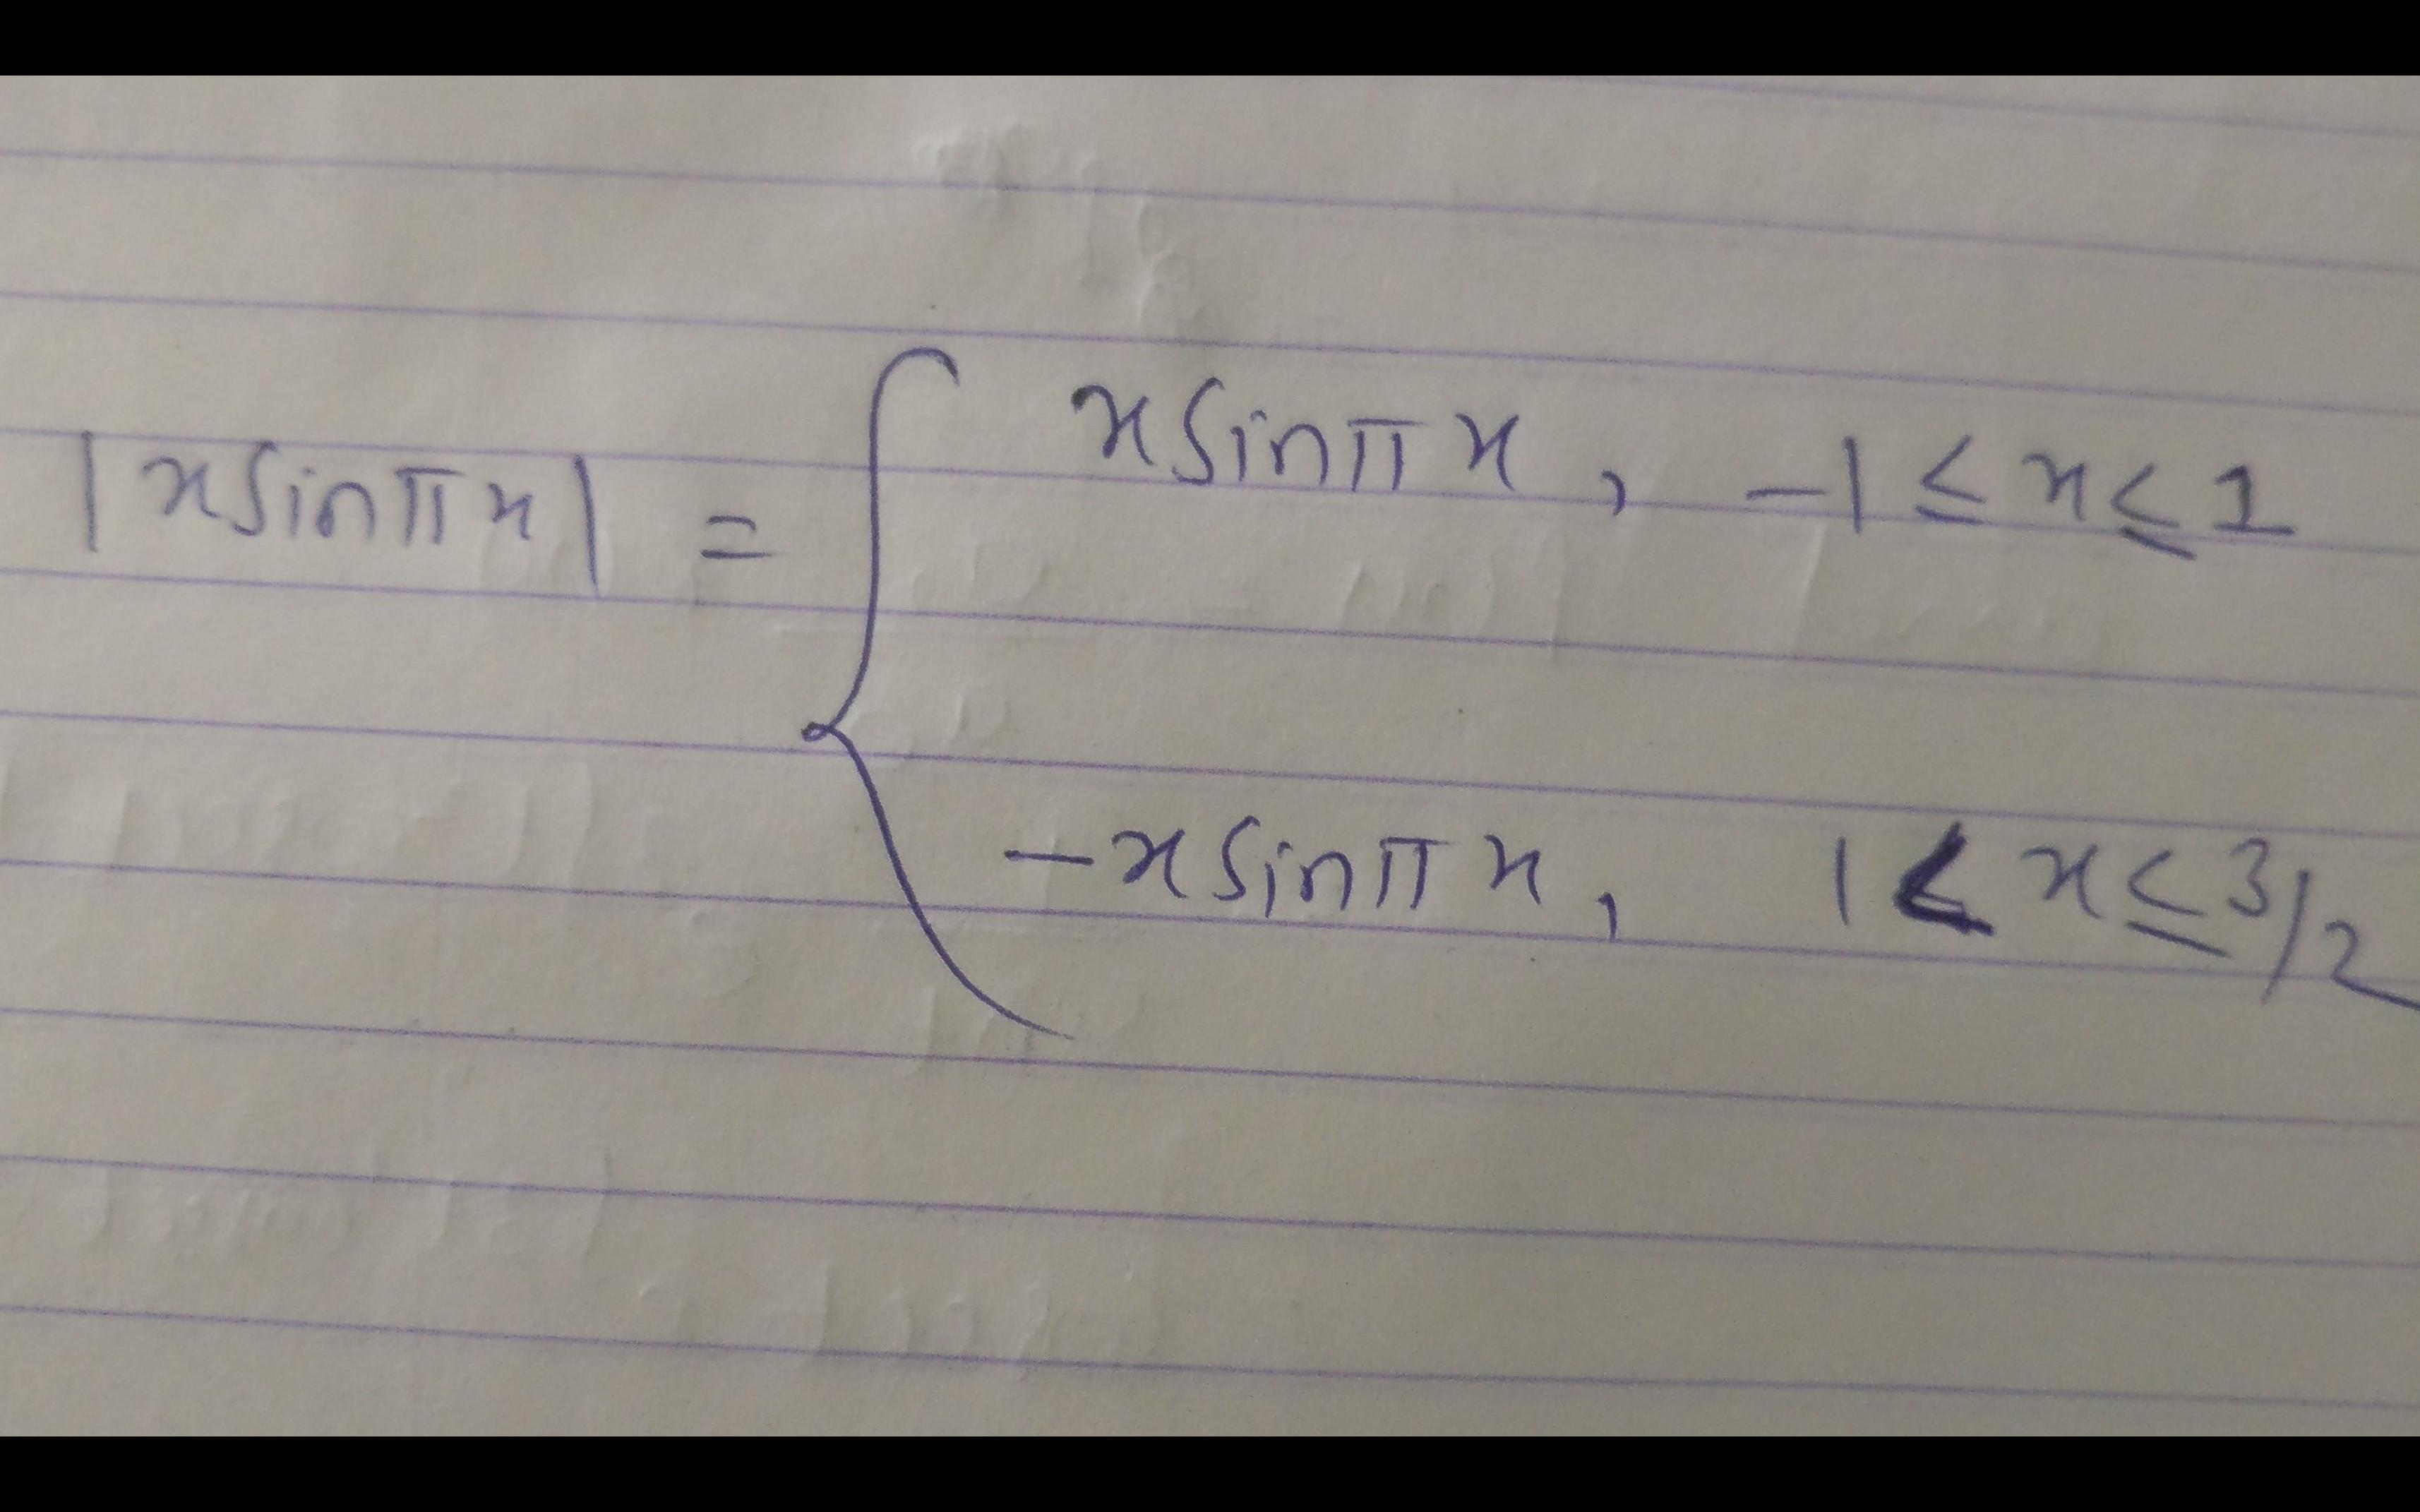 |x sin π x| = { x sin π x , -1 ≤ x ≤ 1
-x sin π x , 1 < x ≤ 3/2